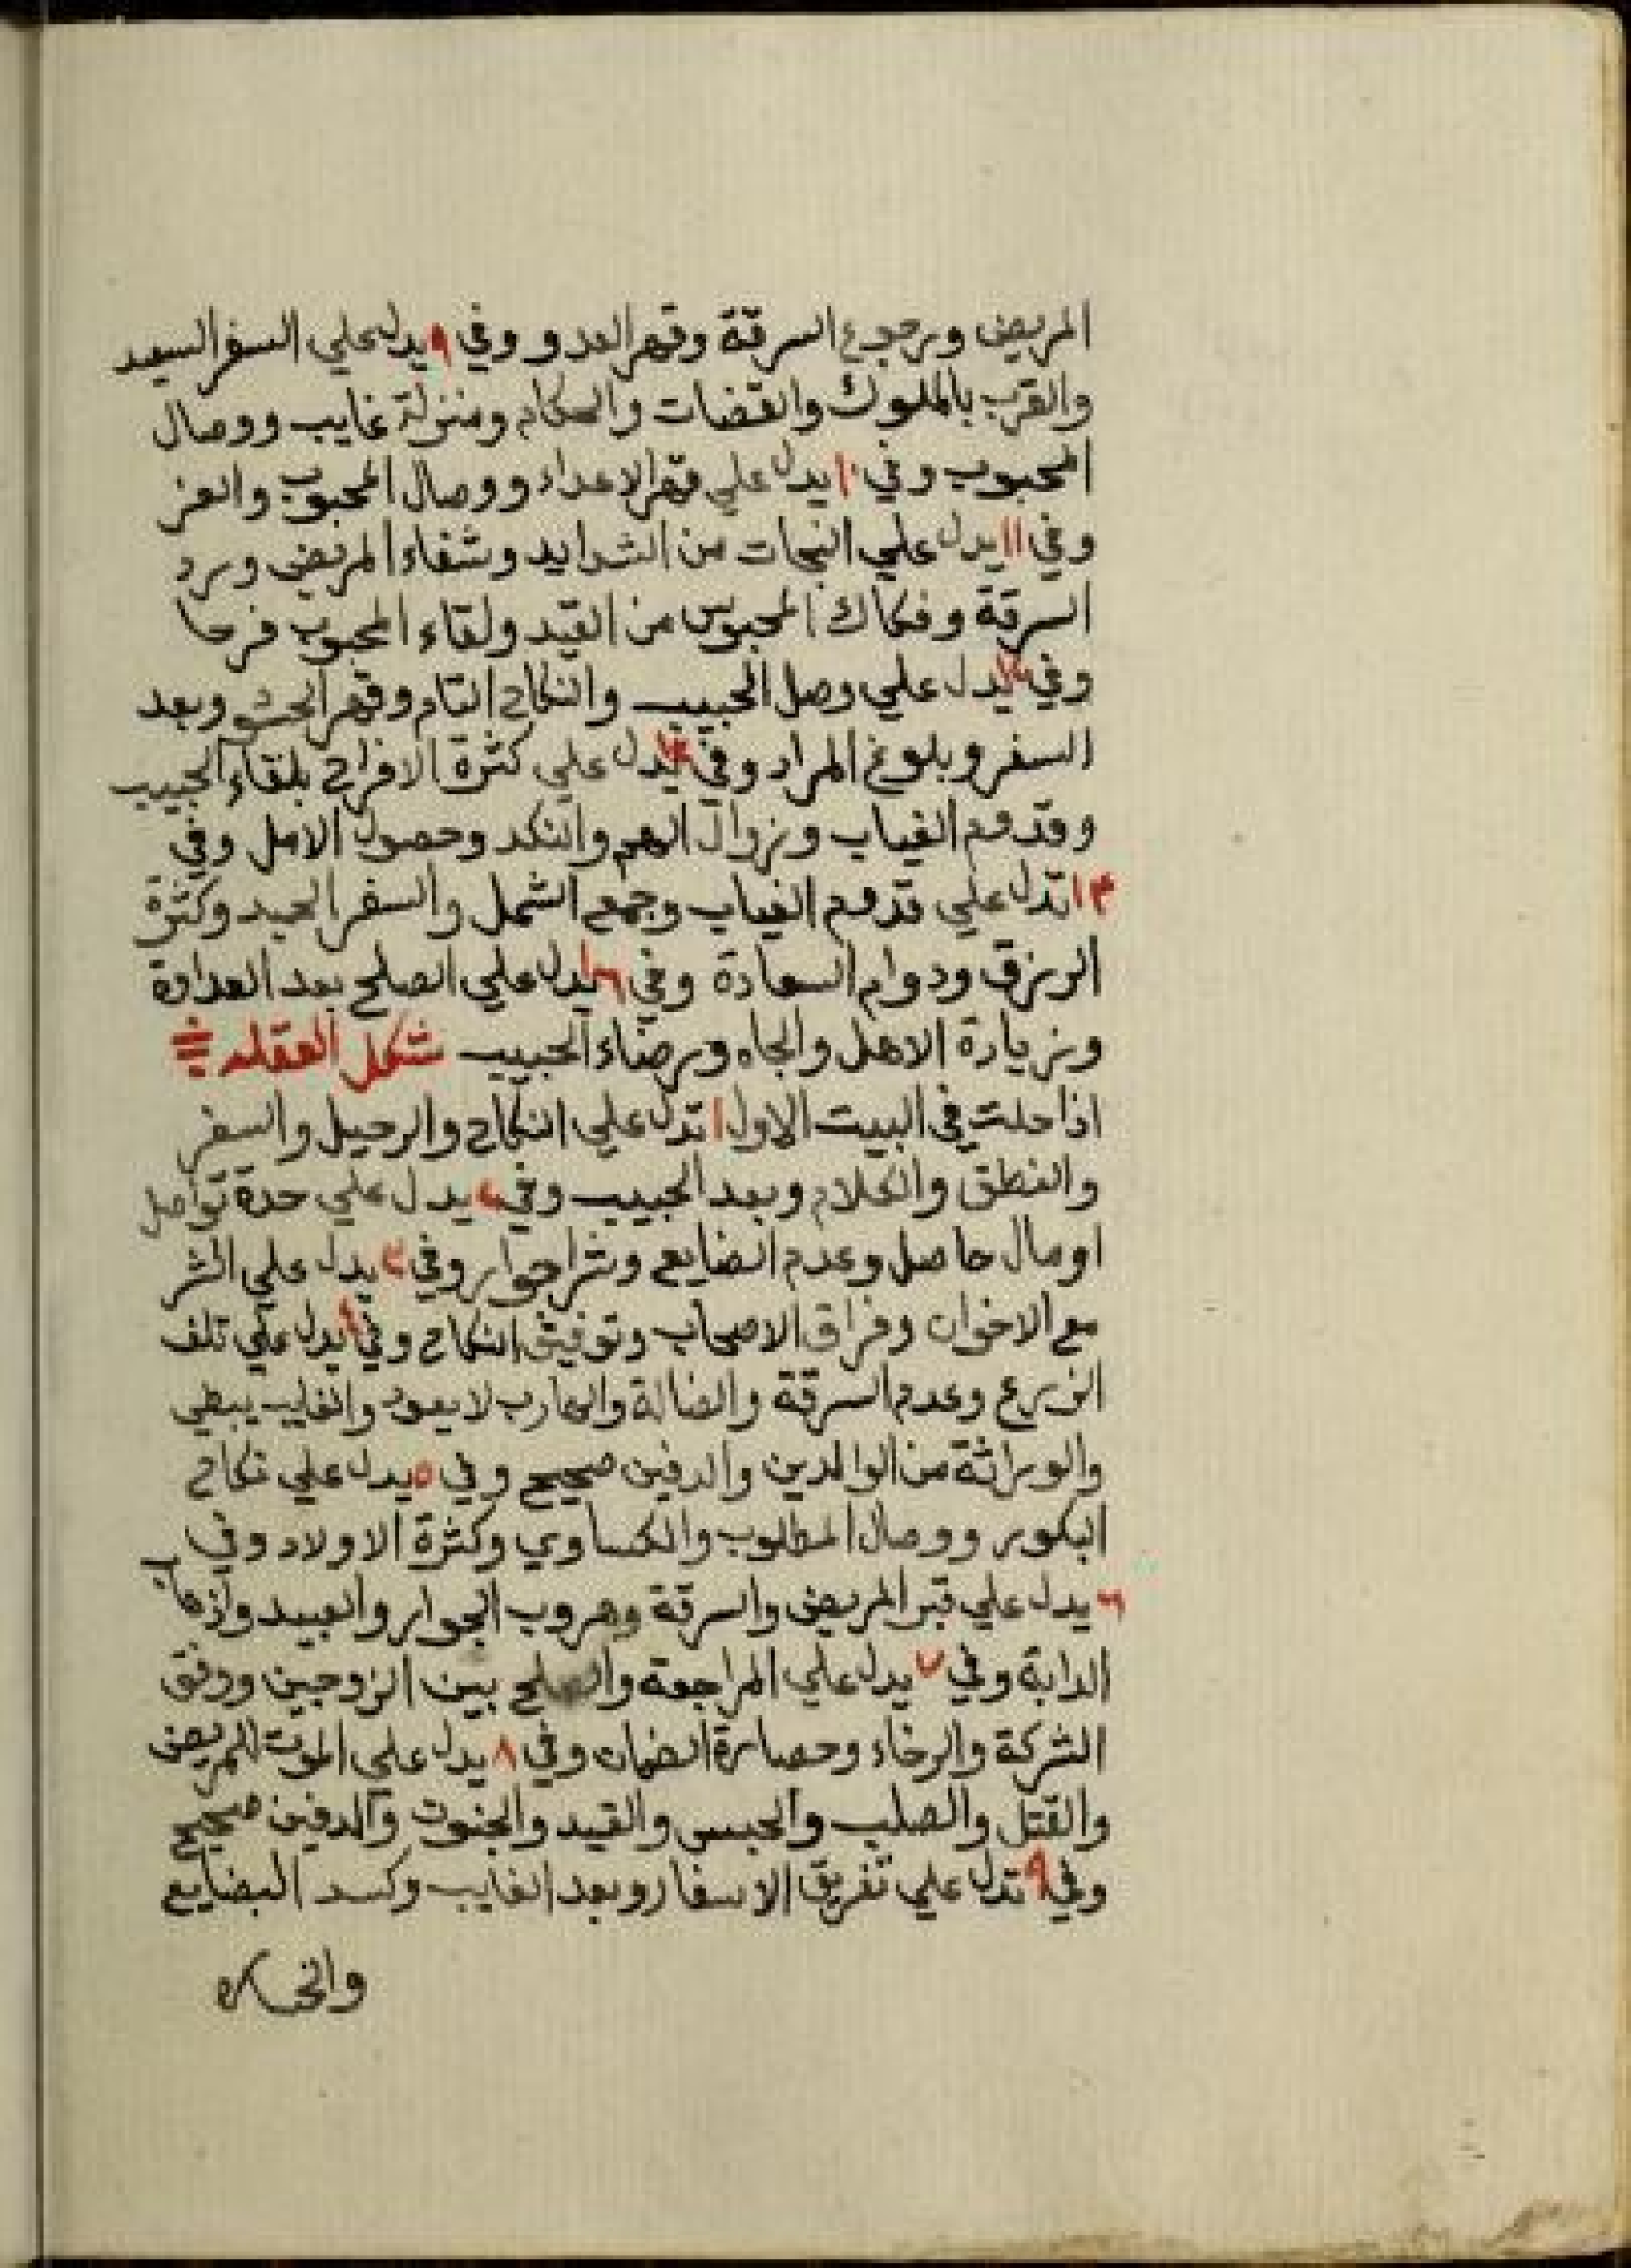 المريض ورجوع السرقة وقهر العدو وفي ٩ يدل علي السفر السعيد
والقرب بالملوك والقضات والحكام ومنزلة غايب ووصال
المحبوب وفي ١٠ يدل علي قهر الاعداء ووصال المحبوب والعز
وفي ١١ يدل علي النجات من الشدايد وشفاء المريض ورد
السرقة وفكاك المحبوس من القيد ولقاء المحبوب فرحا
وفي ١٢ يدل علي وصل الحبيب والنكاح التام وقهر وبعد
السفر وبلوغ المراد وفي ١٣ يدل علي كثرة الافراح بلقاء الحبيب
وقدوم الغياب وزوال الهم والنكد وحصول الامل وفي
١٤ تدل علي قدوم الغياب وجمع الشمل والسفر وكثرة
الرزق ودوام السعادة وفي ١٦ يدل علي الصلح بعد العداوة
وزيادة الاهل والجاه ورضاء الحبيب شكل العقله
اذا حلت في البيت الاول ١ تدل علي النكاح والرحيل والسفر
والنطق والكلام وبعد الحبيب وفي ٢ يدل علي حدة تواصل
او مال حاصل وعدم الضايع وشرا جوار وفي ٣ يدل علي الشر
مع الاخوان وفراق الاصحاب وتوفيق النكاح وفي ٤ يدل علي تلف
الزرع وعدم السرقة والضالة والهارب لا يعود والغايب يبطي
والوراثة من الوالدين والدفين صحيح وفي ٥ يدل علي نكاح
البكور ووصال المطلوب والكساوي وكثرة الاولاد وفي
٦ يدل علي قبر المريض والسرقة وهروب الجوار والعبيد
الدابة وفي ٧ يدل علي المراجعة والصلح بين الزوجين ورفق
الشركة والرخاء وخسارة الضمان وفي ٨ يدل علي الموت للمريض
والقتل والصلب والحبس والقيد والجنون والدفين صحيح
وفي ٩ تدل علي تفريق الاسفار وبعد الغايب وكسد البضايع